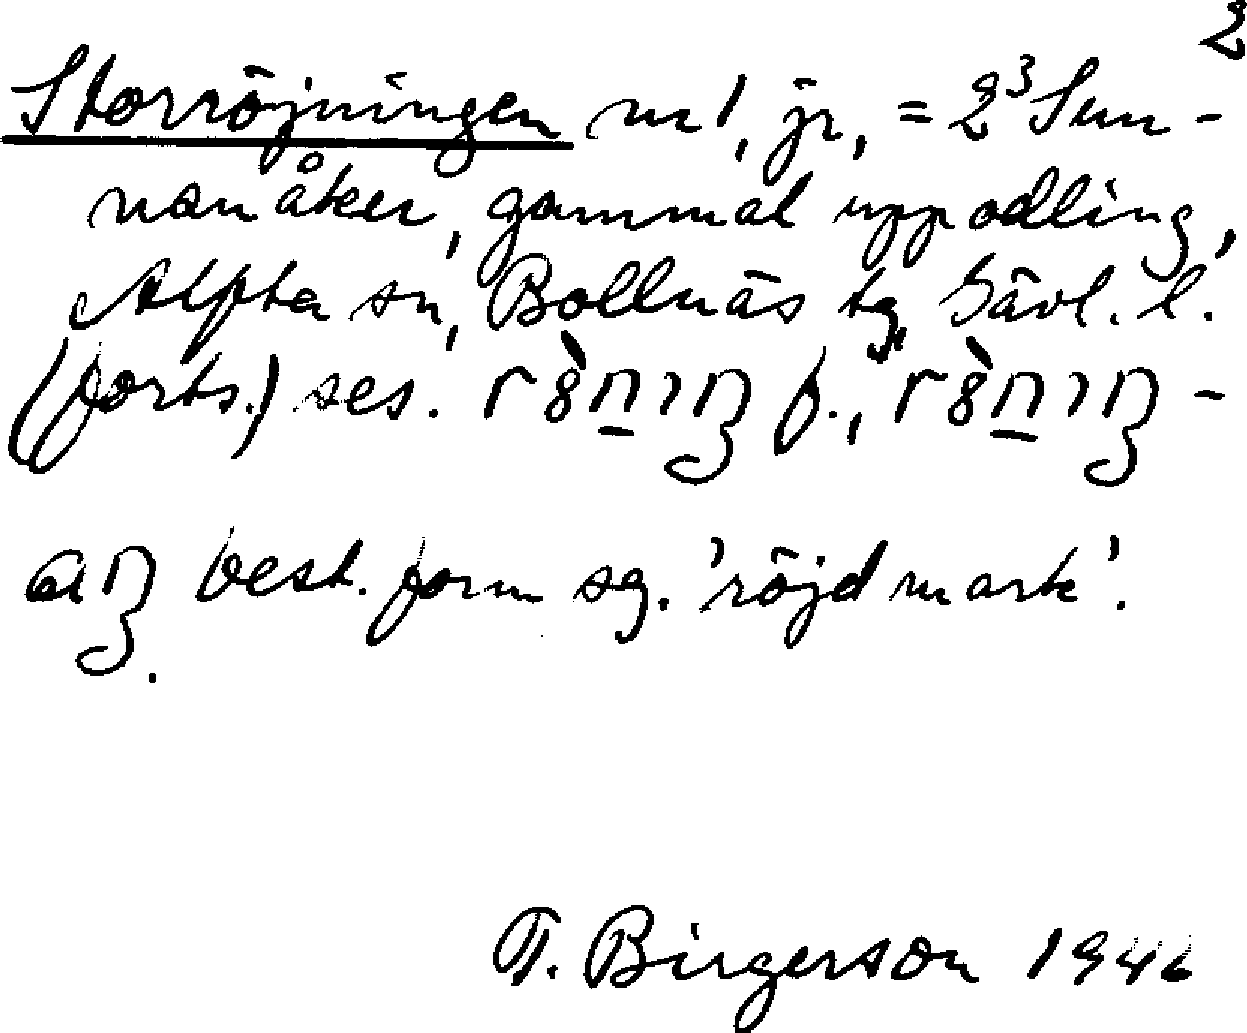 2
Storröjningen m1, jr, = 2³ Sun-
nanåker, gammal uppodling,
Alfta sn, Bollnäs tg, Gävl. l.
(forts.) ses.
best. form sg. 'röjd mark'.
T. Birgerson 1946